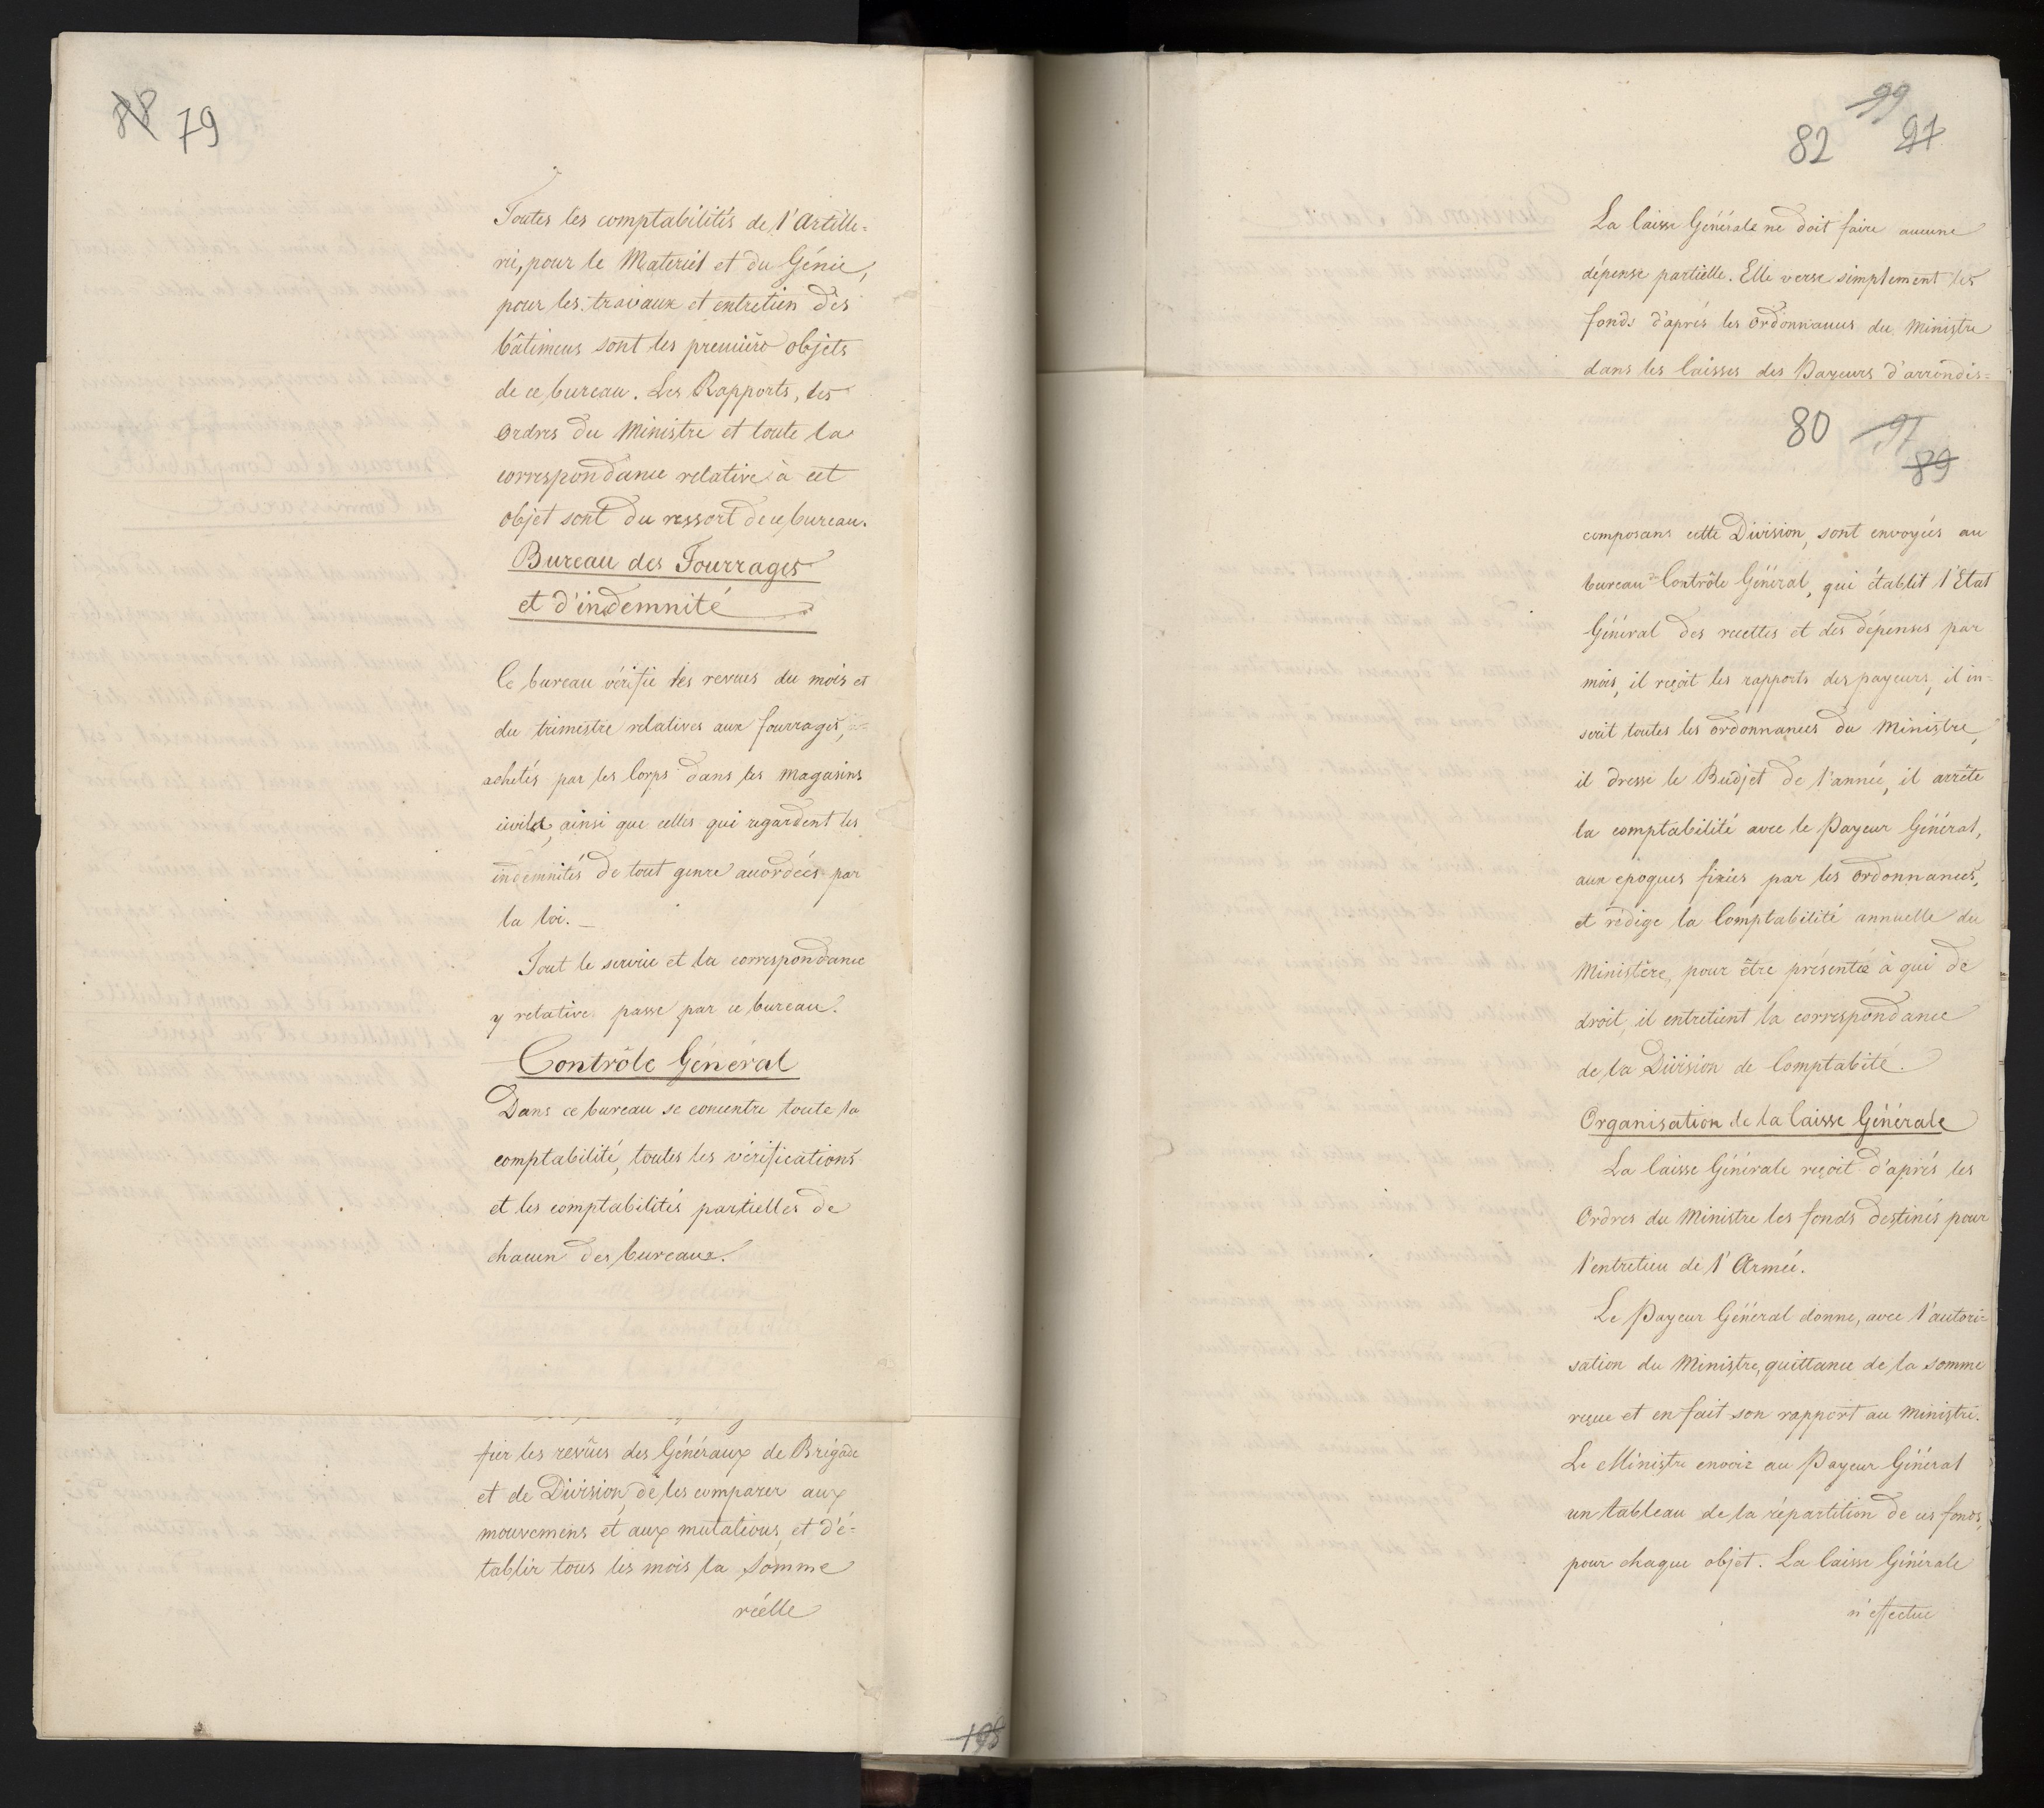 88 79
Toutes les comptabilités de l'Artille=
rie, pour le Materiel et du Génie,
pour les travaux et entretien des
bâtimens sont les premiérs objets
de ce bureau. Les Rapports, les
Ordres du Ministre et toute la
correspondance relative à cet
objet sont du ressort de ce bureau.
Bureau des Fourrages
et d'indemnité
Ce bureau vérifie les revues du mois et
du trimestre relatives aux fourrages,
achetés par les Corps dans les magasins
civils, ainsi que celles qui regardent les
indemnités de tout genre accordées par
la loi. _
Tout le service et la correspondance
y relative passe par ce bureau.
Contrôle Général
Dans ce bureau se concentre toute la
comptabilité, toutes les vérifications
et les comptabilités partielles de
chacun des bureaux.
fier les revües des Généraux de Brigade
et de Division, de les comparer aux
mouvemens et aux mutations, et d'é-
tablir tous les mois la Somme
réelle
198
99
82 97
La Caisse Générale ne doit faire aucune
dépense partielle. Elle verse simplement les
fonds d'aprés les Ordonnances du Ministre
dans les Caisses des Payeurs d'arrondis=
80 91
89
composans cette Division, sont envoyées au
bureau Contrôle Général, qui établit l'Etat
Général des recettes et des dépenses par
mois, il reçoit les rapports des payeurs, il in-
scrit toutes les ordonnances du Ministre,
il dresse le Budjet de l'année, il arrête
la comptabilité avec le Payeur Général,
aux époques fixées par les ordonnances,
et rédige la Comptabilité annuelle du
Ministère, pour être présentée à qui de
droit, il entretient la correspondance
de la Division de Comptabité.
Organisation de la Caisse Générale
La Caisse Générale reçoit d'aprés les
Ordres du Ministre les fonds destinés pour
l'entretien de l'Armée.
Le Payeur Général donne, avec l'autori=
sation du Ministre, quittance de la somme
reçue et en fait son rapport au Ministre.
Le Ministre envoie au Payeur Général
un tableau de la répartition de ces fonds,
pour chaque objet. La Caisse Générale
n'effectue